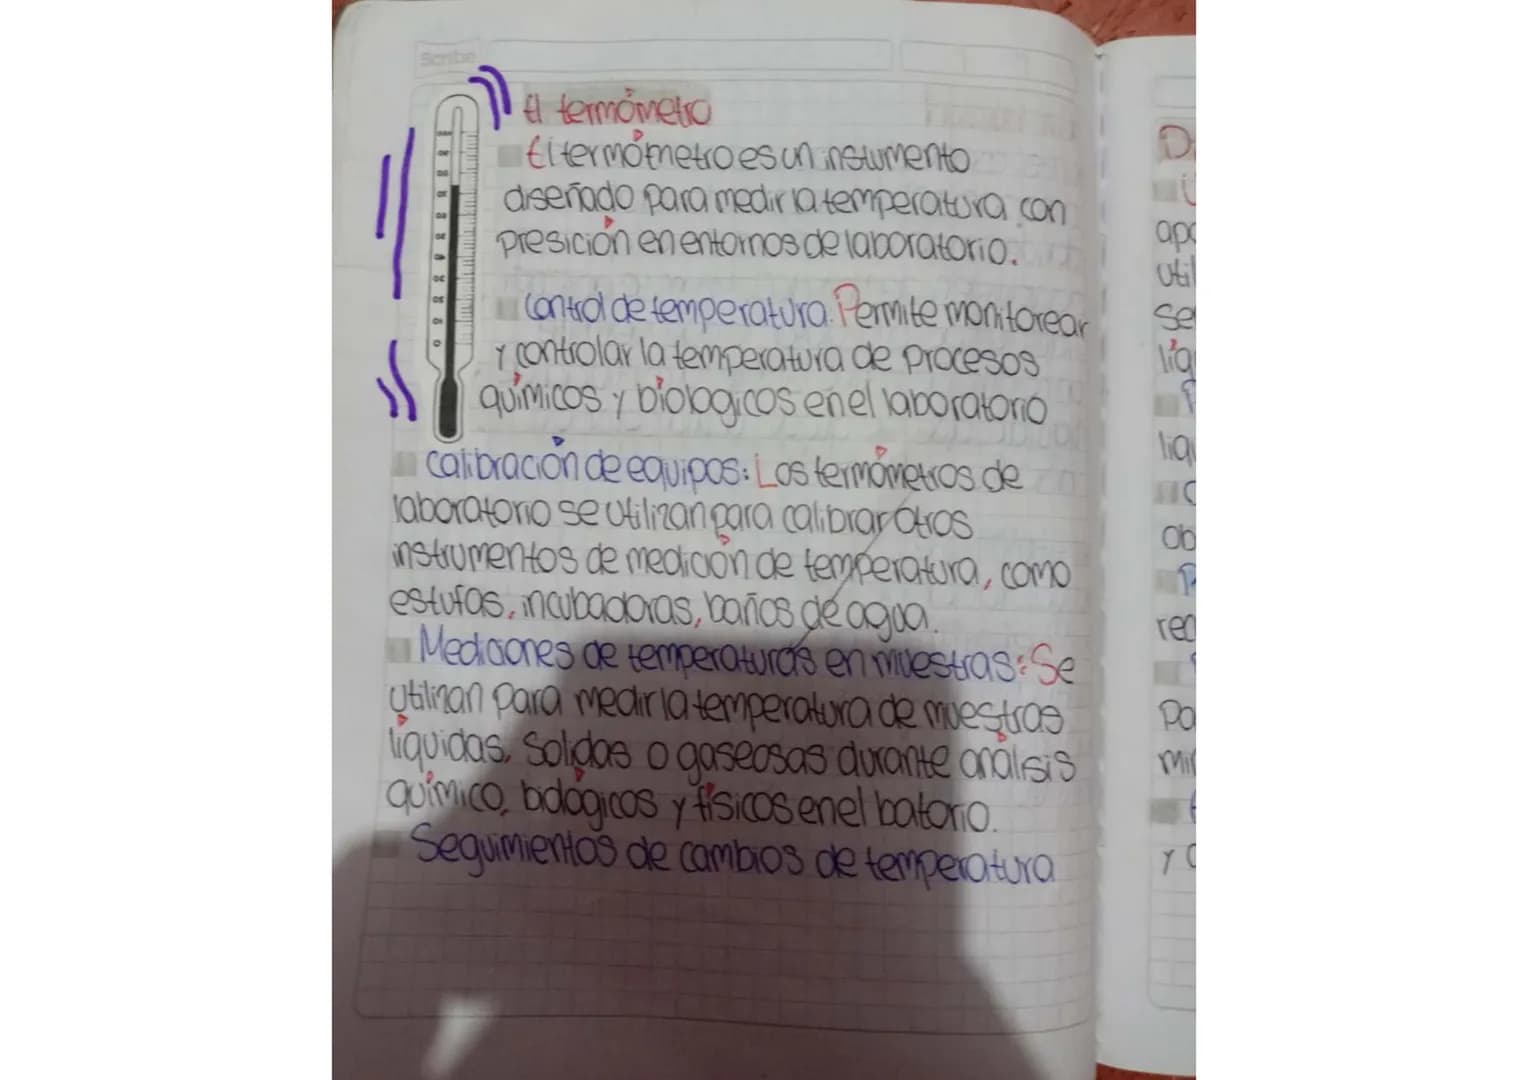 Scribe
El termómetro
El termómetro es un instumento
diseñado para medir la temperatura con
presición en entornos de laboratorio.
Control de temperatura. Permite monitorear
y controlar la temperatura de procesos
químicos y biologicos en el laboratorio
Calibración de equipos: Los termómetros de
laboratorio se utilizan para calibrar otros
instrumentos de medición de temperatura, como
estufas, incubadoras, baños de agua.
Mediciones de temperaturas en muestras: Se
utilizan para medir la temperatura de muestras
líquidas, Solidas o gaseosas durante análisis
químico, biológicos y físicos en el batorio.
Seguimientos de cambios de temperatura